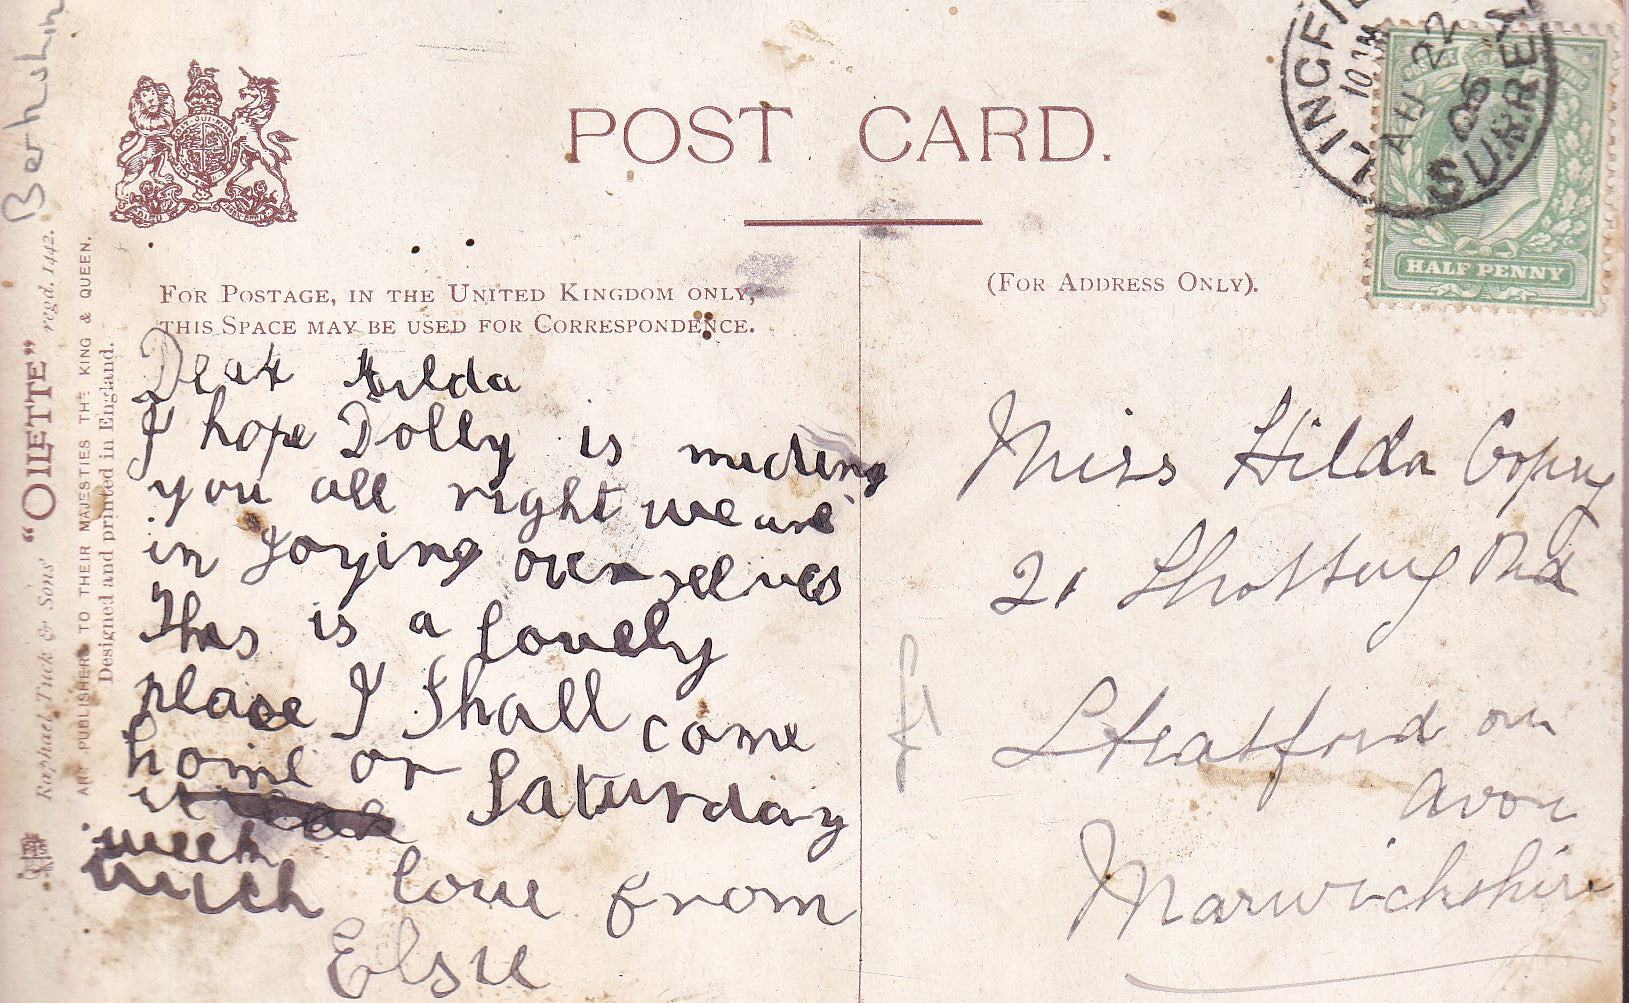 POST CARD.
FOR POSTAGE, IN THE UNITED KINGDOM ONLY,
THIS SPACE MAY BE USED FOR CORRESPONDENCE.
(FOR ADDRESS ONLY).
Dear Hilda
I hope Dolly is
you all right we are
in joying ourselves
This is a lovely
place I Shall come
home or Saturday
week
much love from
Elsie
Miss Hilda
21 Shottery Rd
Stratford on
avon
Warwickshire
LINGFI
10
AU 22
05
SURREY
HALF PENNY
Raphael Tuck & Sons' "OILETTE" regd. 1442.
ART PUBLISHERS TO THEIR MAJESTIES THE KING & QUEEN.
Designed and printed in England.